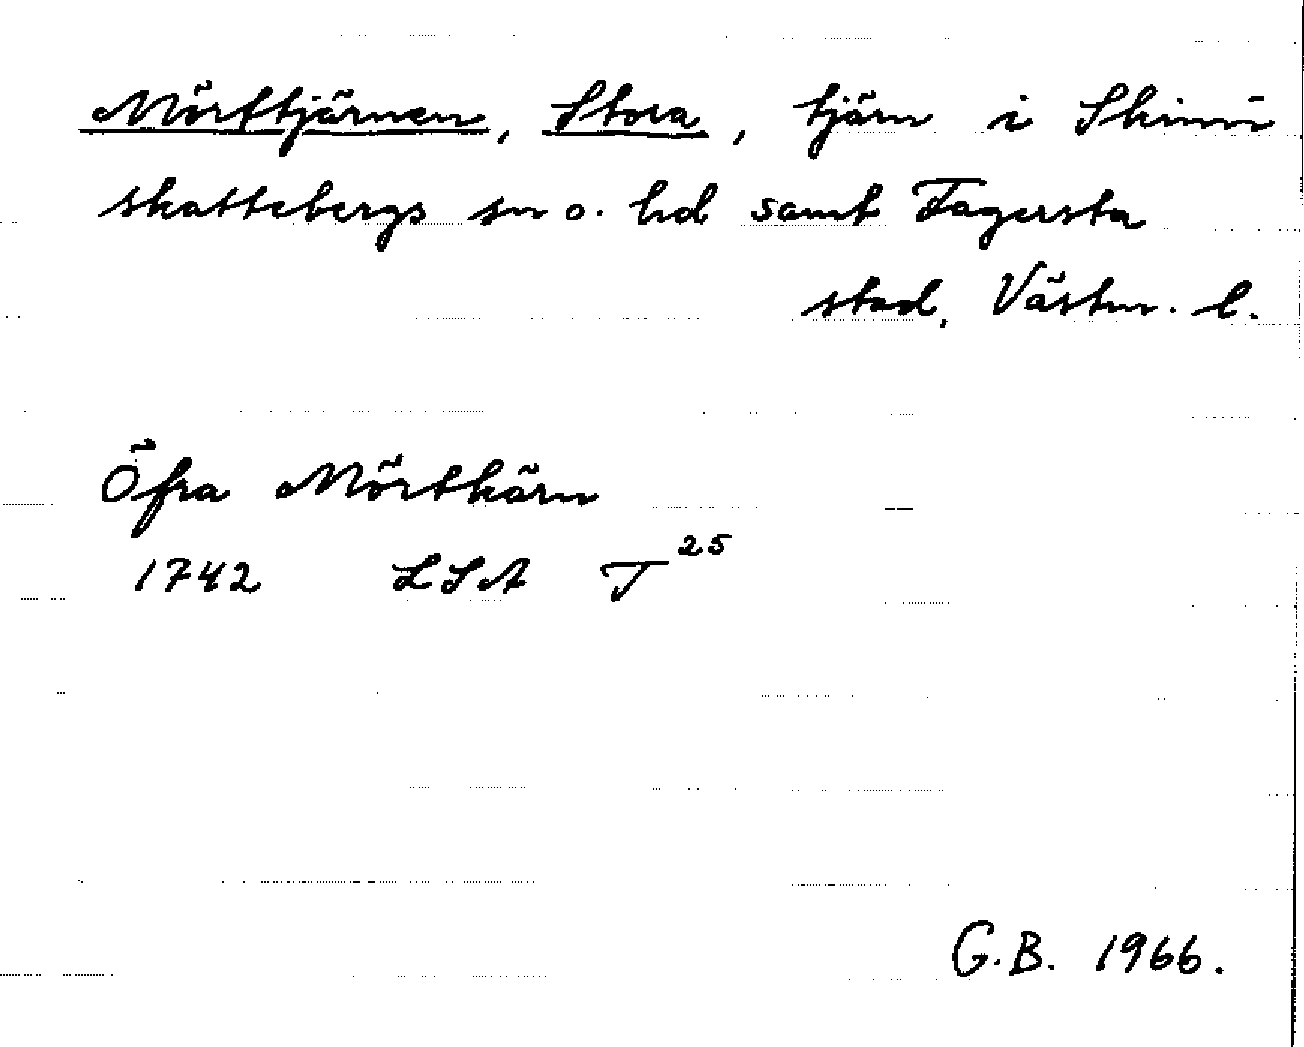 Mörttjärnen, Stora, tjärn i Skinn-
skattebergs sn o. hd samt Fagersta
stad, Västm. l.
Öfra Mörtkärn
1742 LSA T25
G.B. 1966.